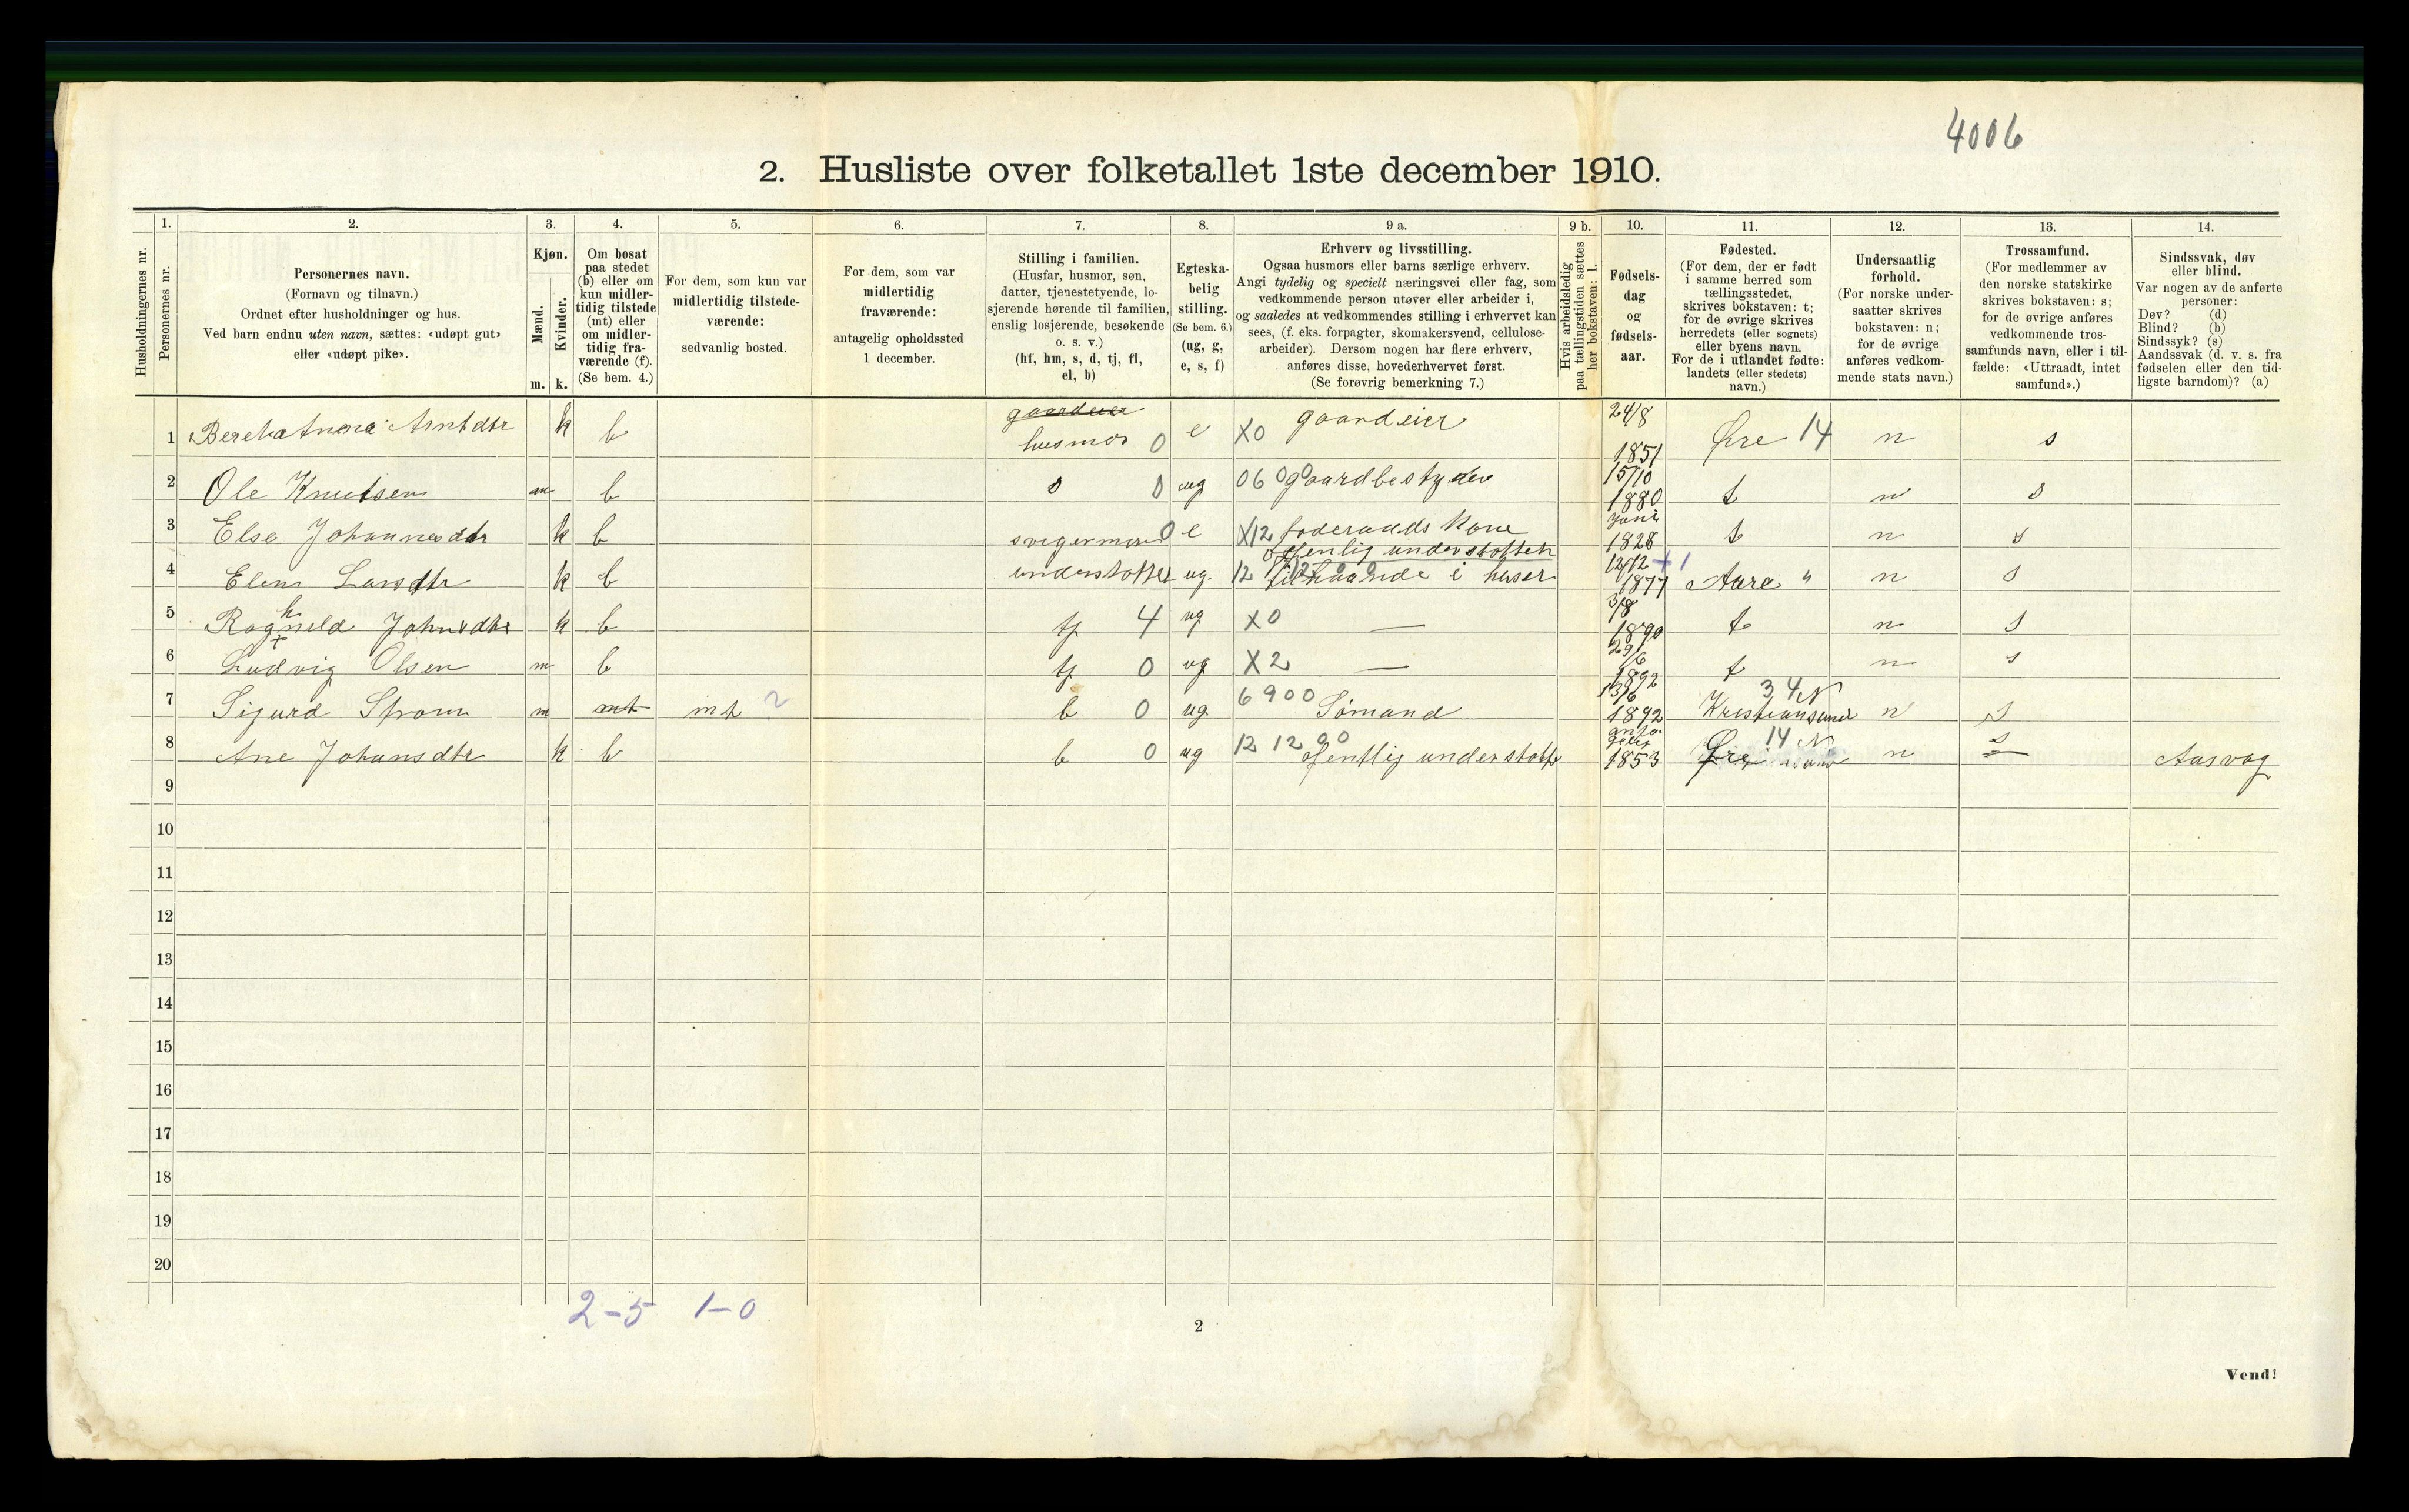 4006
2. Husliste over folketallet 1ste december 1910.
1. 2. 3. 4. 5. 6. 7. 8. 9 a. 9 b. 10. 11. 12. 13. 14.
Husholdningernes nr.
Personernes nr.
Personernes navn.
(Fornavn og tilnavn.)
Ordnet efter husholdninger og hus.
Ved barn endnu uten navn, sættes: «udøpt gut»
eller «udøpt pike».
Kjøn.
Mænd.
Kvinder.
m. k.
Om bosat
paa stedet
(b) eller om
kun midler-
tidig tilstede
(mt) eller
om midler-
tidig fra-
værende (f).
(Se bem. 4.)
For dem, som kun var
midlertidig tilstede-
værende:
sedvanlig bosted.
For dem, som var
midlertidig
fraværende:
antagelig opholdssted
1 december.
Stilling i familien.
(Husfar, husmor, søn,
datter, tjenestetyende, lo-
sjerende hørende til familien,
enslig losjerende, besøkende
o. s. v.)
(hf, hm, s, d, tj, fl,
el, b)
Egteska-
belig
stilling.
(Se bem. 6.)
(ug, g,
e, s, f)
Erhverv og livsstilling.
Ogsaa husmors eller barns særlige erhverv.
Angi tydelig og specielt næringsvei eller fag, som
vedkommende person utøver eller arbeider i,
og saaledes at vedkommendes stilling i erhvervet kan
sees, (f. eks. forpagter, skomakersvend, cellulose-
arbeider). Dersom nogen har flere erhverv,
anføres disse, hovederhvervet først.
(Se forøvrig bemerkning 7.)
Hvis arbeidsledig
paa tællingstiden sættes
her bokstaven: l.
Fødsels-
dag
og
fødsels-
aar.
Fødested.
(For dem, der er født
i samme herred som
tællingsstedet,
skrives bokstaven: t;
for de øvrige skrives
herredets (eller sognets)
eller byens navn.
For de i utlandet fødte:
landets (eller stedets)
navn.)
Undersaatlig
forhold.
(For norske under-
saatter skrives
bokstaven: n;
for de øvrige
anføres vedkom-
mende stats navn.)
Trossamfund.
(For medlemmer av
den norske statskirke
skrives bokstaven: s;
for de øvrige anføres
vedkommende tros-
samfunds navn, eller i til-
fælde: «Uttraadt, intet
samfund».)
Sindssvak, døv
eller blind.
Var nogen av de anførte
personer:
Døv? (d)
Blind? (b)
Sindssyk? (s)
Aandssvak (d. v. s. fra
fødselen eller den tid-
ligste barndom)? (a)
gaardeier 24/8
1 Arntdtr k b husmor 0 e X0 gaardeier 1851 Øre 14 n s
15/10
2 Ole Knutsen m b s 0 ug gaardbestyder 1880 t n s
3 Else Johannesdtr k b svigermor 0 e X12 foderaads Kone 1828 t n s
12/12 +1
4 Elen Larsdtr k b understøttet ug 12 1877 Aure " n s
3/8
5 Ragnhild Johnsdtr k b tj 4 ug X0 — 1890 t n s
29/6
6 Ludvig Olsen m b tj 0 ug X2 — 1892 t n s
13/6 34 N
7 Sigurd Strøm m mt mt ? b 0 ug 6900 Sømand 1892 Kristiansund n s
14 N
8 Ane Johansdtr k b b 0 ug 12 12 90 ofentlig understøtt 1853 Øre n s Aasvag
9
10
11
12
13
14
15
16
17
18
19
20
2-5 1-0
2
Vend!